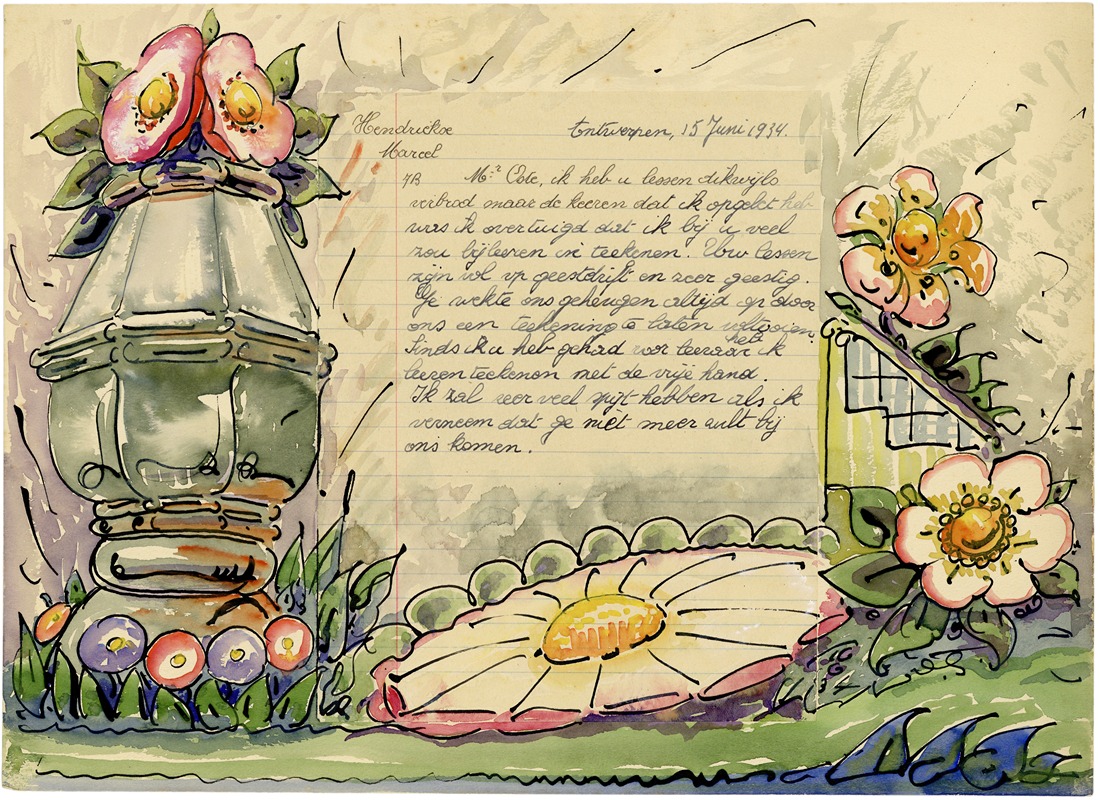 Hendrickx
Antwerpen, 15 Juni 1934.
Marcel
7B Mr Cole, ik heb u lessen dikwijls
verbrod maar de keeren dat ik opgelet heb
was ik overtuigd dat ik bij u veel
zou bijleeren in teekenen. Uw lessen
zijn vol van geestdrift en zeer geestig.
Ge wekte ons geheugen altijd op door
ons een teekening te laten
Sinds ik u heb gehad voor leeraar heb ik
leeren teekenen met de vrije hand.
Ik zal zeer veel spijt hebben als ik
verneem dat ge niet meer zult bij
ons komen.